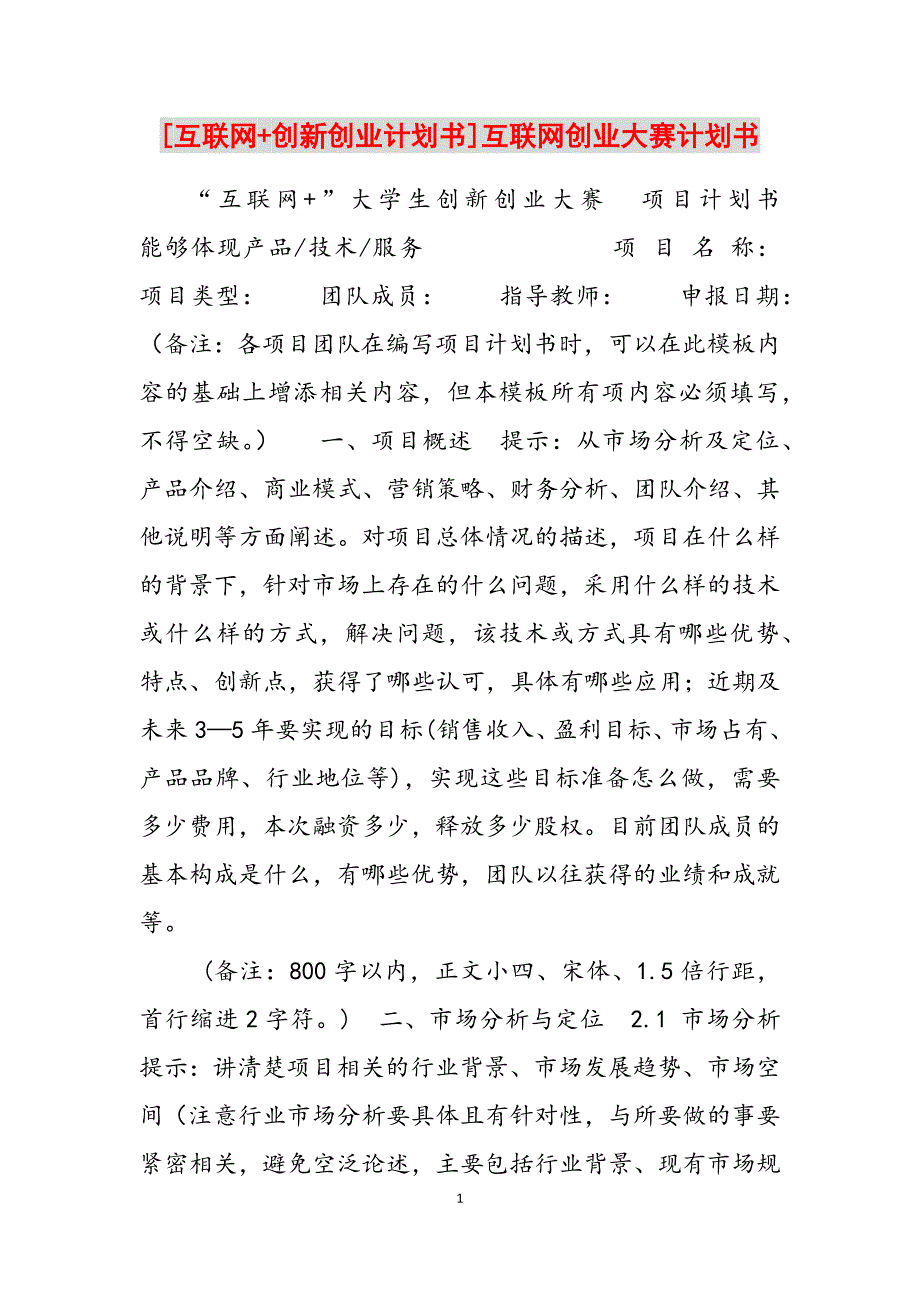 [互联网+创新创业计划书]互联网创业大赛计划书
“互联网+”大学生创新创业大赛 项目计划书
能够体现产品/技术/服务 项 目 名 称：
项目类型： 团队成员： 指导教师： 申报日期：
（备注：各项目团队在编写项目计划书时，可以在此模板内
容的基础上增添相关内容，但本模板所有项内容必须填写，
不得空缺。） 一、项目概述 提示：从市场分析及定位、
产品介绍、商业模式、营销策略、财务分析、团队介绍、其
他说明等方面阐述。对项目总体情况的描述，项目在什么样
的背景下，针对市场上存在的什么问题，采用什么样的技术
或什么样的方式，解决问题，该技术或方式具有哪些优势、
特点、创新点，获得了哪些认可，具体有哪些应用；近期及
未来3—5年要实现的目标(销售收入、盈利目标、市场占有、
产品品牌、行业地位等)，实现这些目标准备怎么做，需要
多少费用，本次融资多少，释放多少股权。目前团队成员的
基本构成是什么，有哪些优势，团队以往获得的业绩和成就
等。
(备注：800字以内，正文小四、宋体、1.5倍行距，
首行缩进2字符。) 二、市场分析与定位 2.1 市场分析
提示：讲清楚项目相关的行业背景、市场发展趋势、市场空
间（注意行业市场分析要具体且有针对性，与所要做的事要
紧密相关，避免空泛论述，主要包括行业背景、现有市场规
1